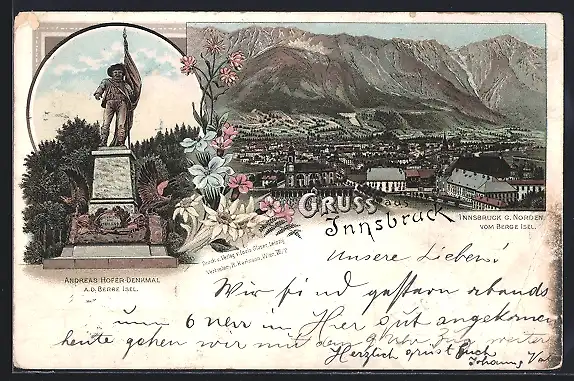 GRUSS aus
Innsbruck
INNSBRUCK G. NORDEN
VOM BERGE ISEL.
ANDREAS HOFER-DENKMAL
A.D. BERGE ISEL.
Unsere Lieben!
Wir sind gestern abends
um 6 Uhr in Hier gut angekommen
heute gehen wir mit dem weiter
Herzlich grüsst Euch
Johann